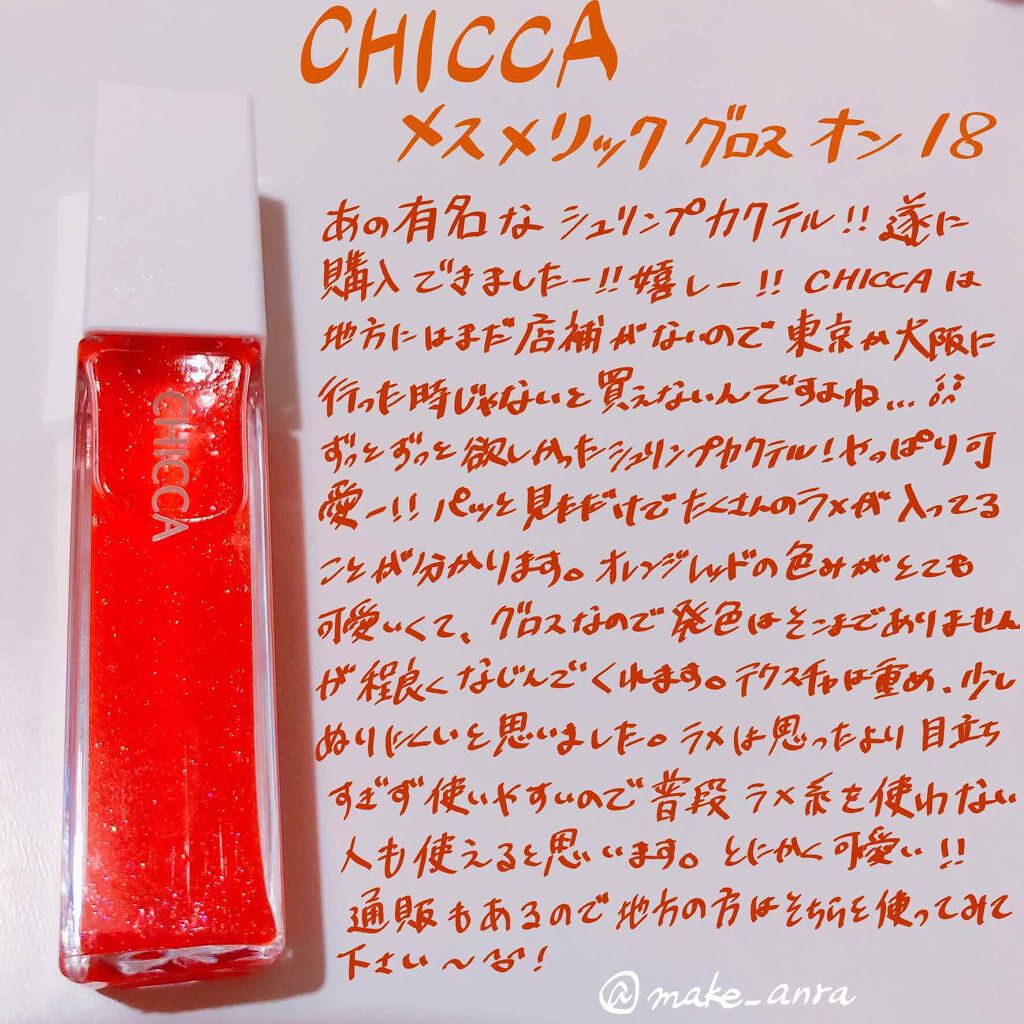 CHICCA
メスメリック グロス オン 18
あの有名な シュリンプカクテル!! 遂に
購入できましたー!! 嬉しー!! CHICCAは
地方にはまだ店補がないので 東京か大阪に
行った時じゃないと買えないんですよね...
ずっとずっと欲しかったシュリンプカクテル!やっぱり可
愛ー!! パッと見ただけでたくさんのラメが入ってる
ことが分かります。オレンジレッドの色みがとても
可愛いくて、グロスなので発色はそこまでありません
が程良くなじんでくれます。テクスチャは重め、少し
ぬりにくいと思いました。ラメは思ったより目立ち
すぎず使いやすいので普段ラメ系を使わない
人も使えると思います。とにかく可愛い!!
通販もあるので地方の方はそちらを使ってみて
下さい〜!
@make_anra
CHICCA